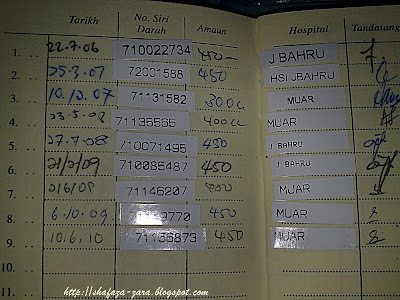 Tarikh No. Siri Darah Amaun Hospital Tandatang
1. 22.7.06 710022734 450 J BAHRU
2. 25.3.07 72001588 450 HSI JBAHRU
3. 10.12.07 71131582 300cc MUAR
4. 23.5.08 71135565 400cc MUAR
5. 27.7.08 710071495 450 J. BAHRU
6. 710085487 450 J. BAHRU
7. 71146207 MUAR
8. 6.10.09 450 MUAR
9. 10.6.10 450 MUAR
10.
11.
http://shafaza-zara.blogspot.com